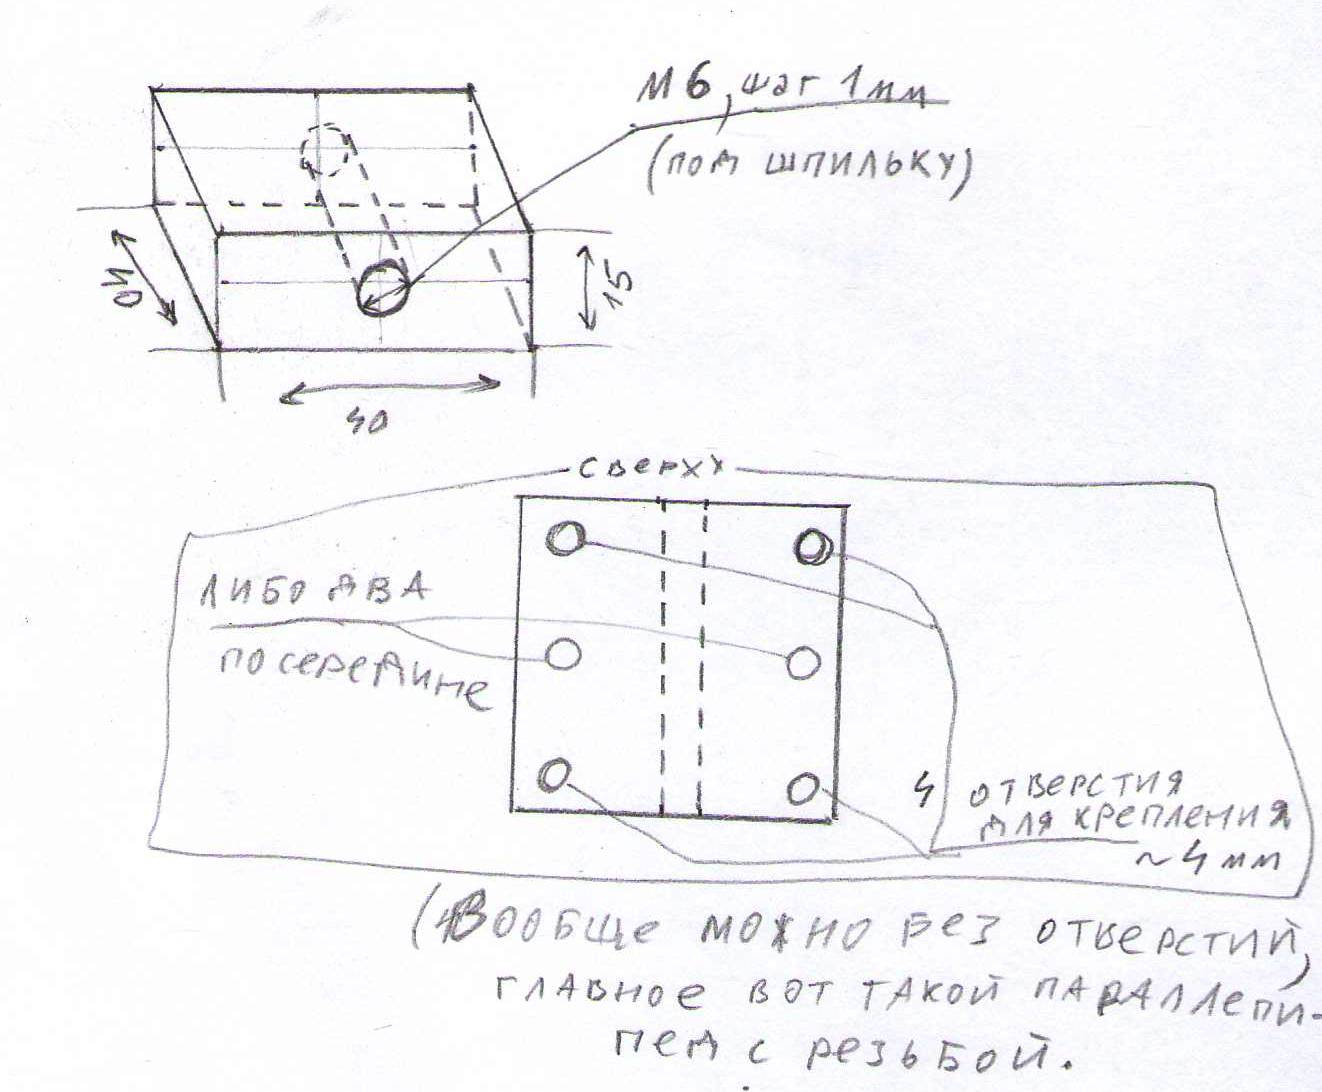 М6, шаг 1мм
(под шпильку)
40
15
40
сверху
либо два
посередине
4 отверстия
для крепления
~4мм
(Вообще можно без отверстий,
главное вот такой параллепи-
пед с резьбой.